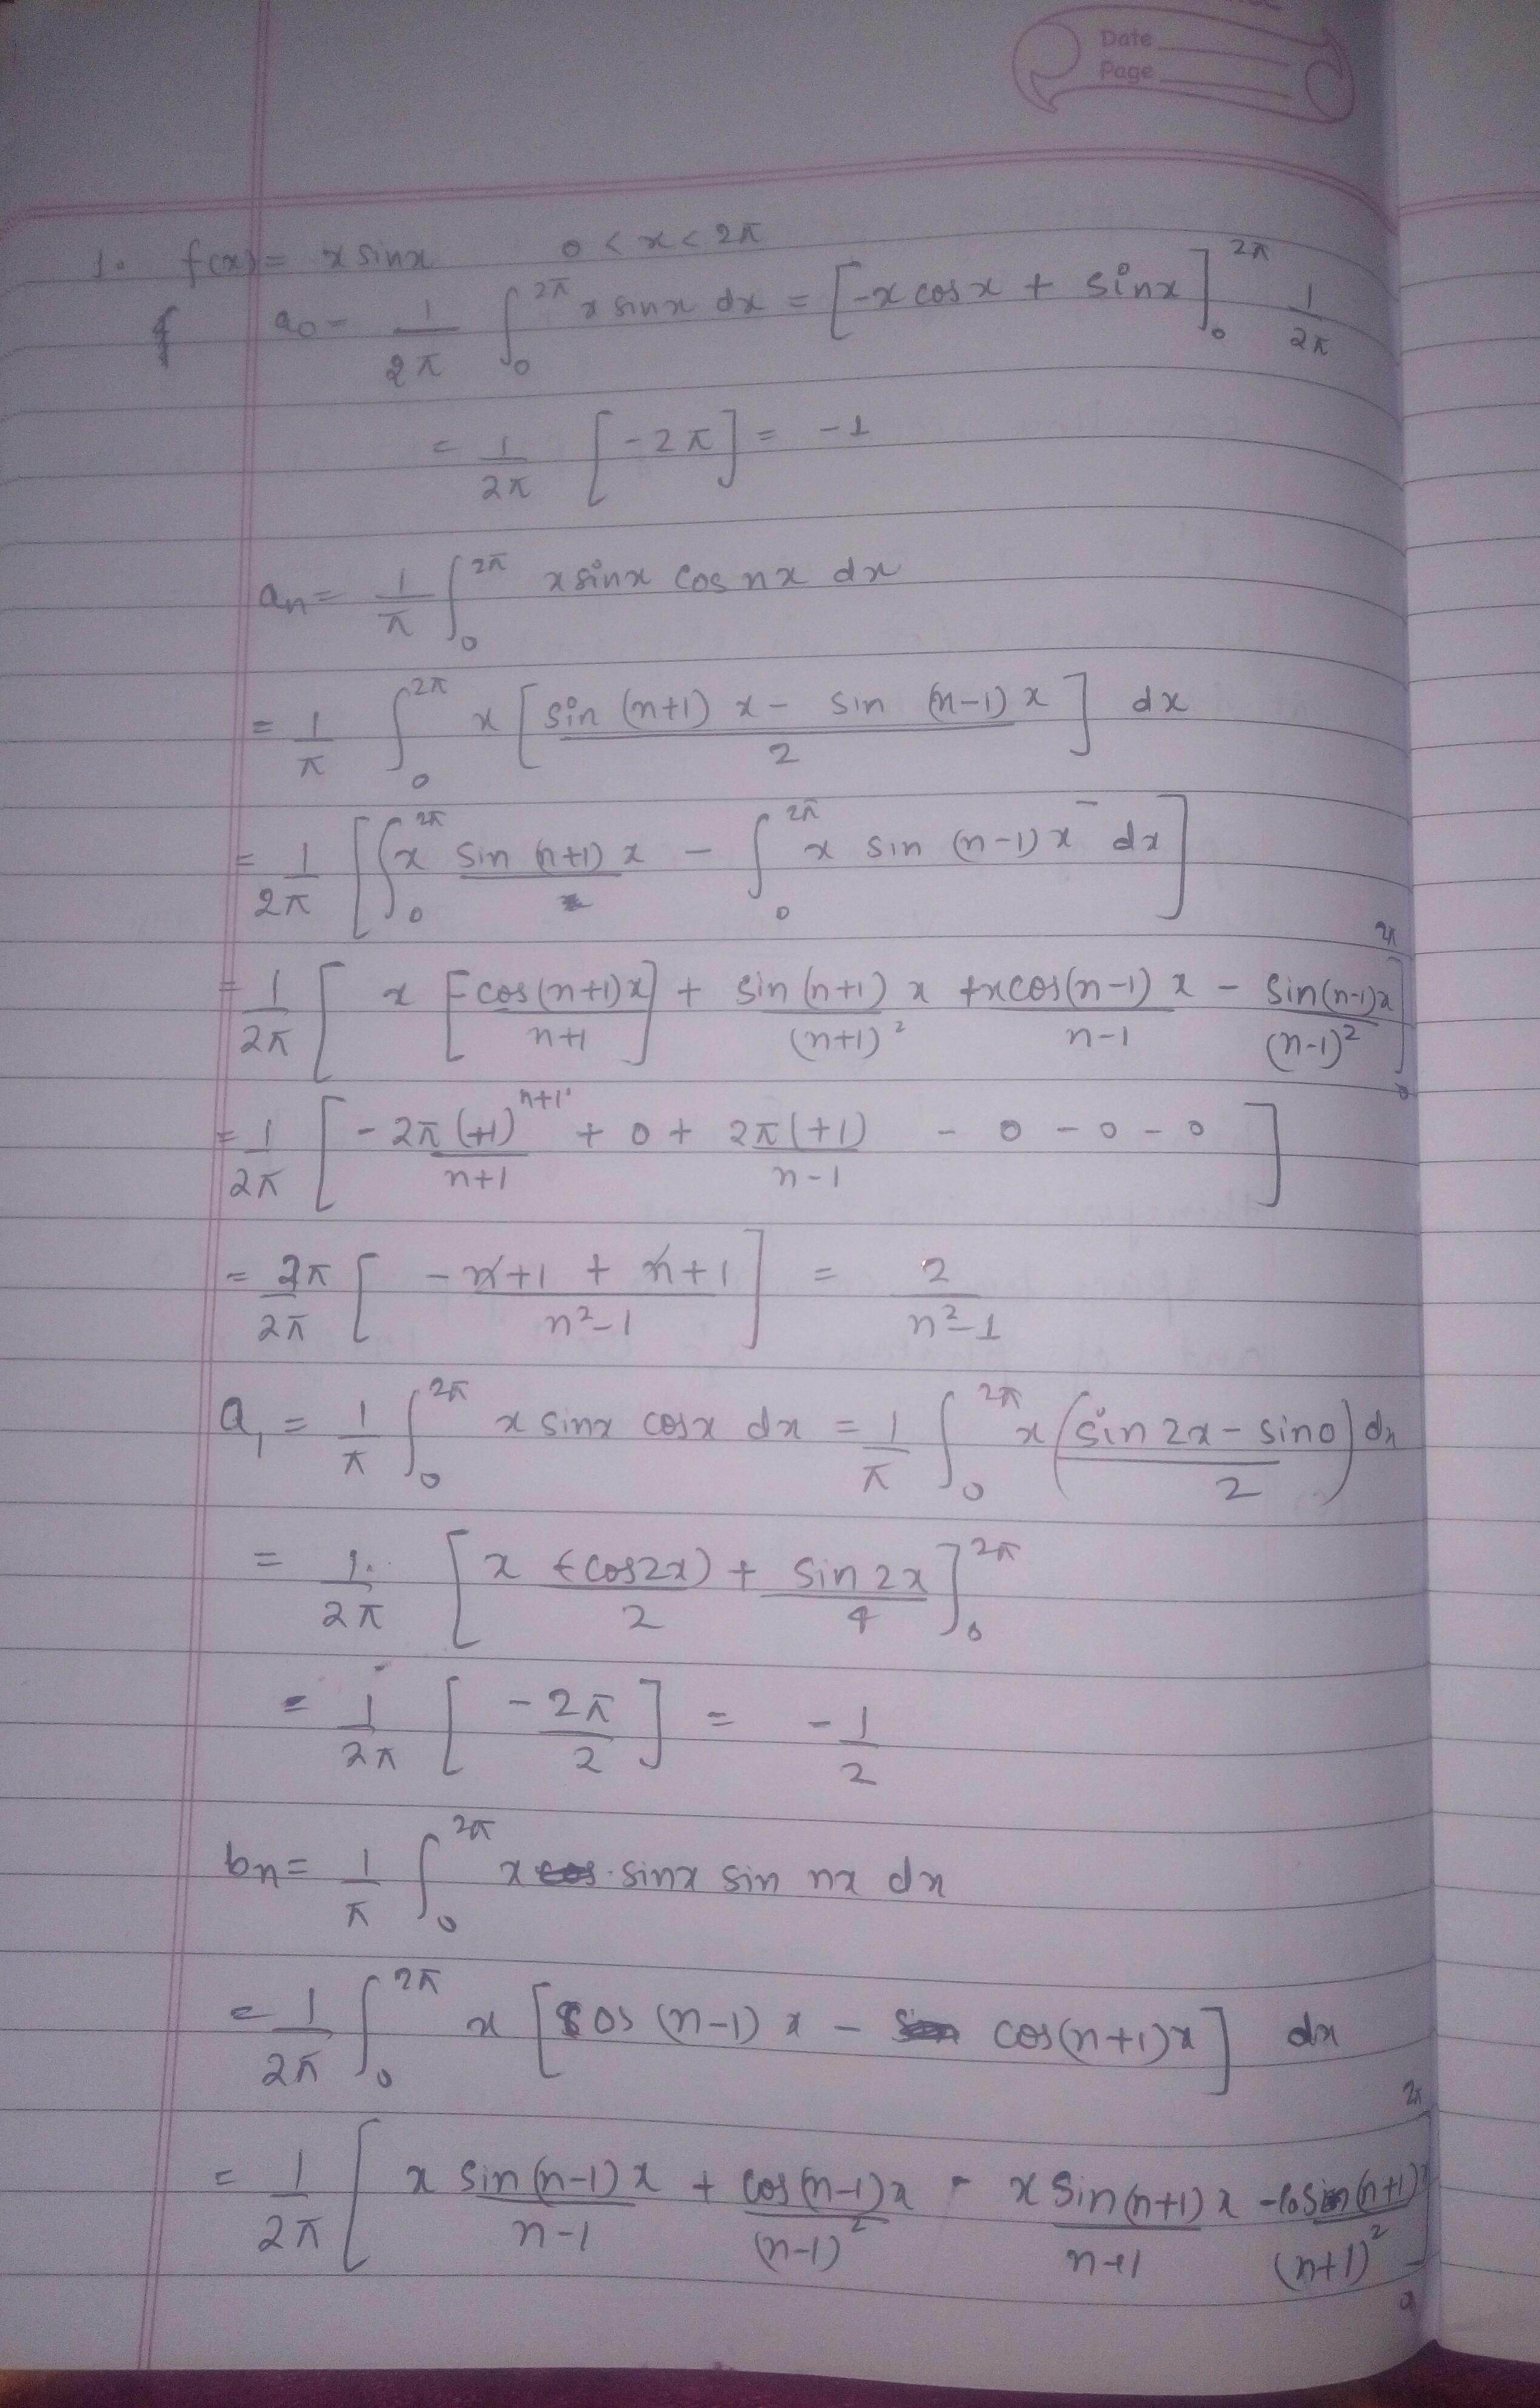 Date
Page
1. f(x) = x sinx 0 < x < 2π
a0 = 1/2π ∫_0^{2π} x sinx dx = [-x cosx + sinx]_0^{2π} 1/2π
= 1/2π [-2π] = -1
an = 1/π ∫_0^{2π} x sinx cos nx dx
= 1/π ∫_0^{2π} x [sin (n+1) x - sin (n-1) x / 2] dx
= 1/2π [∫_0^{2π} x sin (n+1) x - ∫_0^{2π} x sin (n-1) x dx]
= 1/2π [x [-cos(n+1)x / n+1] + sin (n+1) x / (n+1)^2 + x cos(n-1) x / n-1 - sin(n-1)x / (n-1)^2]_0^{2π}
= 1/2π [-2π (+1)^{n+1} / n+1 + 0 + 2π(+1) / n-1 - 0 - 0 - 0]
= 2π/2π [-n+1 + n+1 / n^2-1] = 2 / n^2-1
a1 = 1/π ∫_0^{2π} x sinx cosx dx = 1/π ∫_0^{2π} x (sin 2x - sin0 / 2) dx
= 1/2π [x (-cos2x) / 2 + sin 2x / 4]_0^{2π}
= 1/2π [-2π / 2] = -1/2
bn = 1/π ∫_0^{2π} x sinx sin nx dx
= 1/2π ∫_0^{2π} x [cos (n-1) x - cos(n+1)x] dx
= 1/2π [x sin(n-1)x / n-1 + cos(n-1)x / (n-1)^2 - x sin(n+1)x / n+1 - cos(n+1)x / (n+1)^2]_0^{2π}